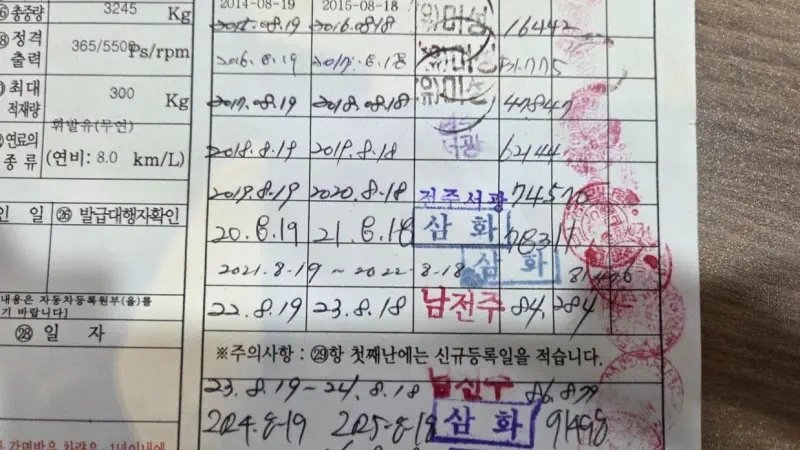 ⑥ 총중량 3245 Kg
2014-08-19 2015-08-18
2015.08.19 2016.08.18 위미성 16442
⑧ 정격 출력 365/5500 Ps/rpm
2016.8.19 2017.8.18 위미성
⑨ 최대 적재량 300 Kg
2017.08.19 2018.08.18 위미성 47847
연료의 종류 휘발유(무연) (연비: 8.0 km/L)
2018.8.19 2019.8.18 서광 62144
2019.8.19 2020.8.18 전주서광
인 일 ㉖ 발급대행자확인
20.8.19 21.8.18 삼화 78311
2021.8.19 ~ 2022.8.18 삼화
내용은 자동차등록원부(을)를
기 바랍니다]
22.8.19 23.8.18 남전주 84,284
㉘ 일 자
※주의사항 : ㉙항 첫째난에는 신규등록일을 적습니다.
23.8.19 ~ 24.8.18
2024.8.19 2025.8.18 삼화 91498
간명받은 차량은 1년이내에